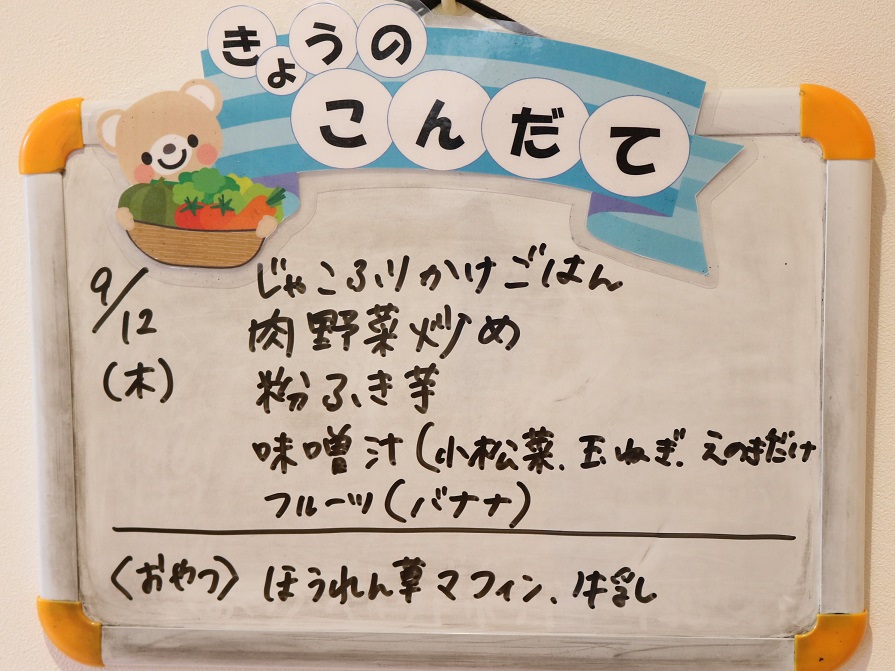 きょうの
こんだて
9/12
(木)
じゃこふりかけごはん
肉野菜炒め
粉ふき芋
味噌汁(小松菜、玉ねぎ、えのきだけ
フルーツ(バナナ)
〈おやつ〉ほうれん草マフィン、牛乳